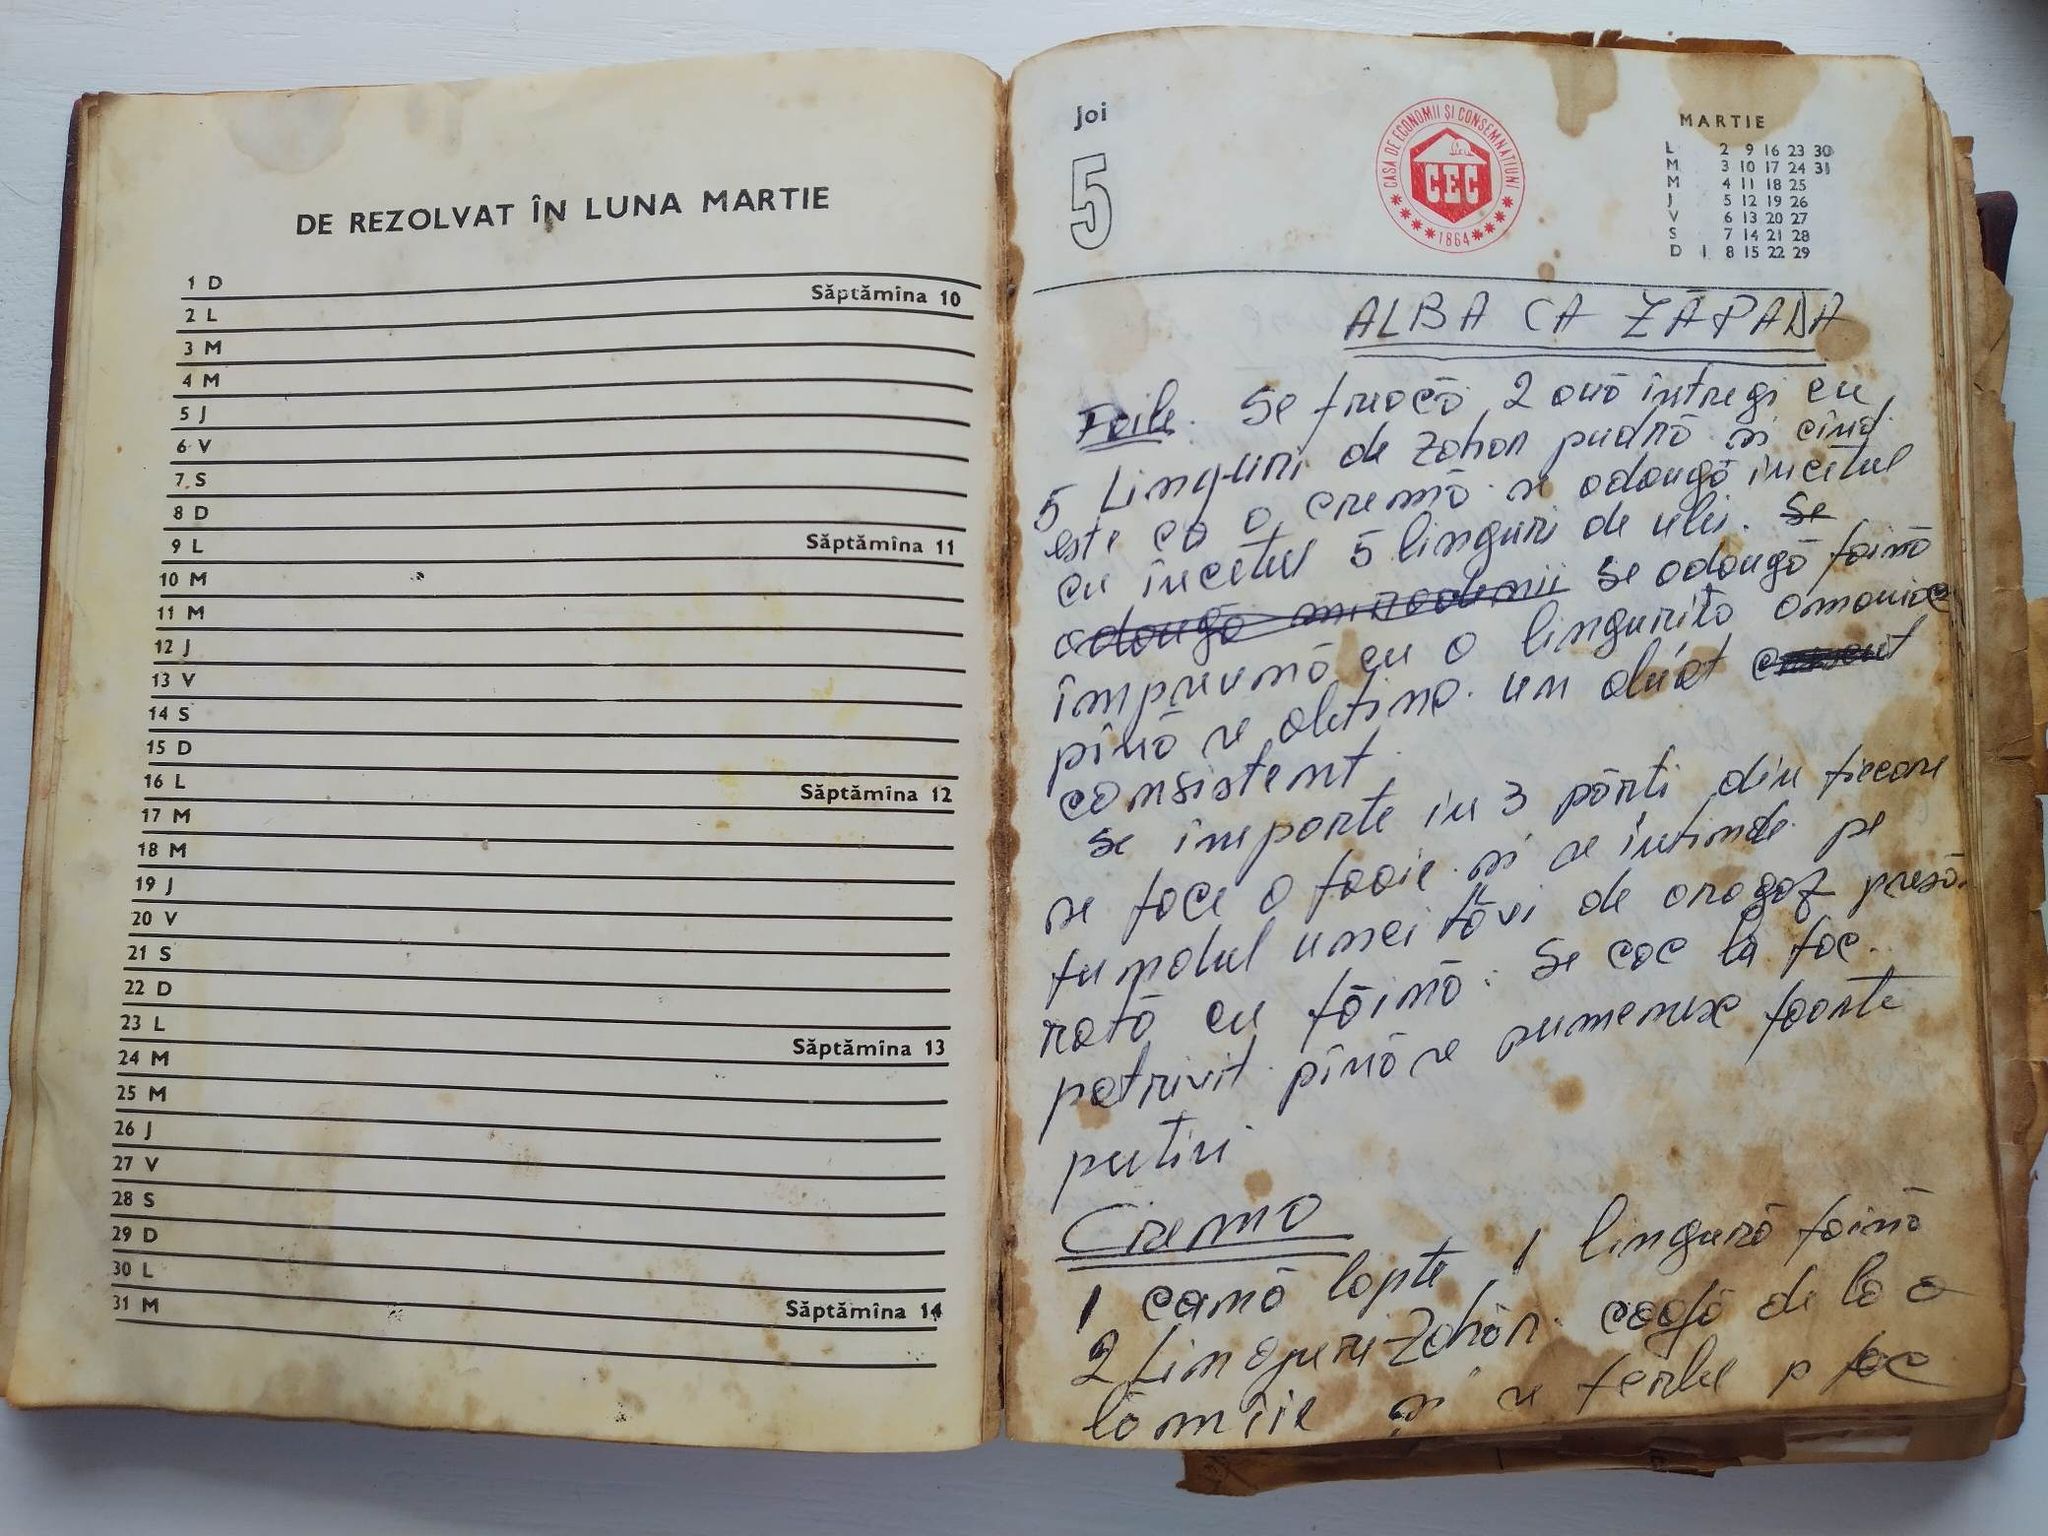 DE REZOLVAT ÎN LUNA MARTIE
1 D
Săptămîna 10
2 L
3 M
4 M
5 J
6 V
7 S
8 D
Săptămîna 11
9 L
10 M
11 M
12 J
13 V
14 S
15 D
Săptămîna 12
16 L
17 M
18 M
19 J
20 V
21 S
22 D
Săptămîna 13
23 L
24 M
25 M
26 J
27 V
28 S
29 D
30 L
Săptămîna 14
31 M
Joi
5
CASA DE ECONOMII ȘI CONSEMNAȚIUNI
CEC
1864
MARTIE
L 2 9 16 23 30
M 3 10 17 24 31
M 4 11 18 25
J 5 12 19 26
V 6 13 20 27
S 7 14 21 28
D 1 8 15 22 29
ALBA CA ZĂPADA
Foile. Se freacă 2 ouă întregi cu
5 Linguri de zahar pudră și cînd
este ca o cremă se adaugă încetul
cu încetul 5 linguri de ulei. Se
adaugă mirodenii se adaugă faină
împreună cu o linguriță amoniac
pînă se obține un aluat
consistent.
Se imparte in 3 părți din fiecare
se face o foaie și se intinde pe
fundolul unei tăvi de aragaz presă-
rată cu făină. Se coc la foc
potrivit pînă se rumenesc foarte
puțin
Crema
1 cană lapte 1 lingură faină
2 Linguri Zahăr coajă de la o
lămîie și se fierbe p foc